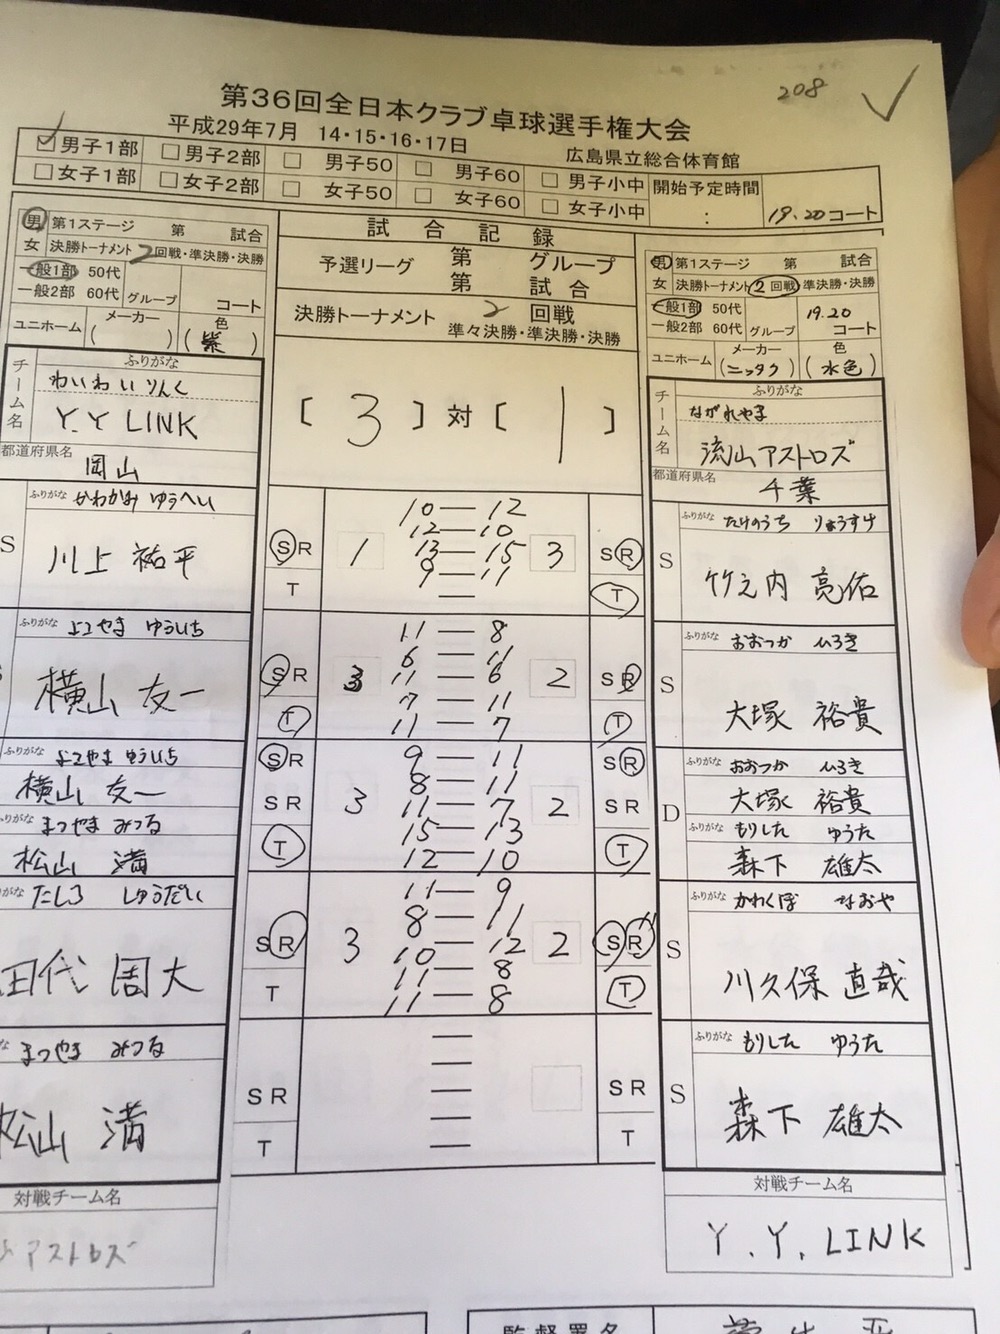 208
第36回全日本クラブ卓球選手権大会
平成29年7月 14・15・16・17日
広島県立総合体育館
男子1部 男子2部 男子50 男子60 男子小中 開始予定時間
女子1部 女子2部 女子50 女子60 女子小中 : 19.20コート
男 第1ステージ 第 試合
女 決勝トーナメント 2回戦・準決勝・決勝
一般1部 50代
一般2部 60代 グループ コート
ユニホーム メーカー ( ) 色 (紫)
ふりがな
チーム名
わいわいりんく
Y.Y LINK
都道府県名
岡山
試合記録
予選リーグ 第 グループ
第 試合
決勝トーナメント 2 回戦
準々決勝・準決勝・決勝
[ 3 ] 対 [ 1 ]
男 第1ステージ 第 試合
女 決勝トーナメント 2回戦 準決勝・決勝
一般1部 50代 19.20
一般2部 60代 グループ コート
ユニホーム メーカー (ニッタク) 色 (水色)
ふりがな
チーム名
ながれやま
流山アストロズ
都道府県名
千葉
S
ふりがな かわかみ ゆうへい
川上 祐平
S R
T
1
10 — 12
12 — 10
13 — 15
9 — 11
—
3
S R
T
S
ふりがな たけのうち りょうすけ
竹之内 亮佑
ふりがな よこやま ゆういち
横山 友一
S R
T
3
11 — 8
6 — 11
11 — 6
7 — 11
11 — 7
2
S R
T
S
ふりがな おおつか ひろき
大塚 裕貴
ふりがな よこやま ゆういち
横山 友一
ふりがな まつやま みつる
松山 満
S R
S R
T
3
9 — 11
8 — 11
11 — 7
15 — 13
12 — 10
2
S R
S R
T
D
ふりがな おおつか ひろき
大塚 裕貴
ふりがな もりした ゆうた
森下 雄太
りがな たしろ しゅうだい
田代 周大
S R
T
3
11 — 9
8 — 11
10 — 12
11 — 8
11 — 8
2
S R
T
S
ふりがな かわくぼ なおや
川久保 直哉
な まつやま みつる
松山 満
S R
T
—
—
—
—
—
S R
T
S
ふりがな もりした ゆうた
森下 雄太
対戦チーム名
アストロズ
対戦チーム名
Y.Y.LINK
監督署名